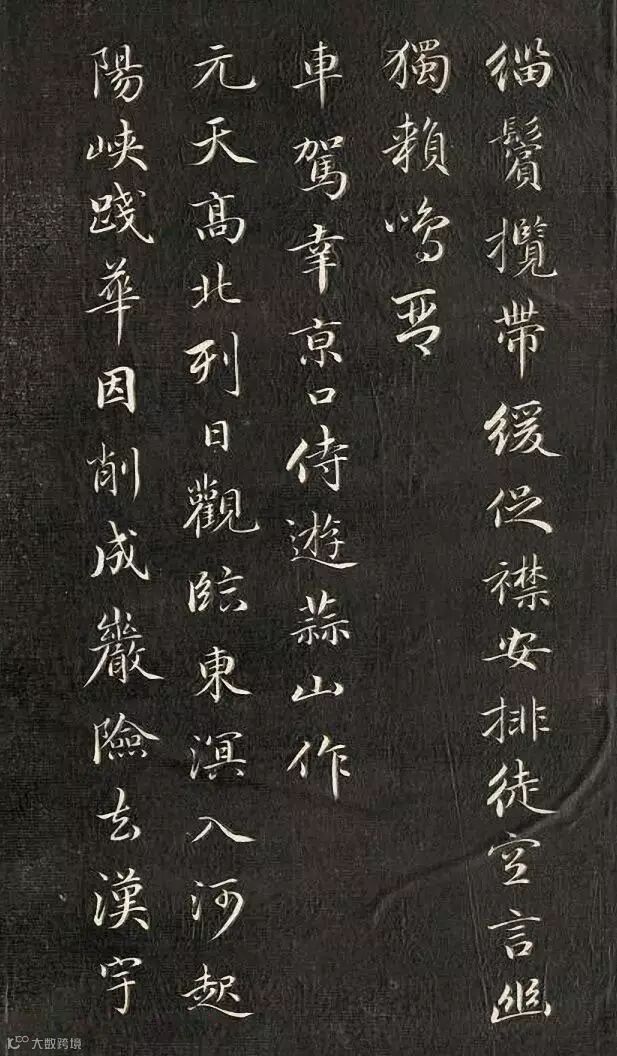 緇鬢攬帶緩促襟安排徒空言幽
獨賴鳴琴
車駕幸京口侍遊蒜山作
元天高北列日觀臨東溟入河起
陽峽踐華因削成巖險去漢宇
大数跨境